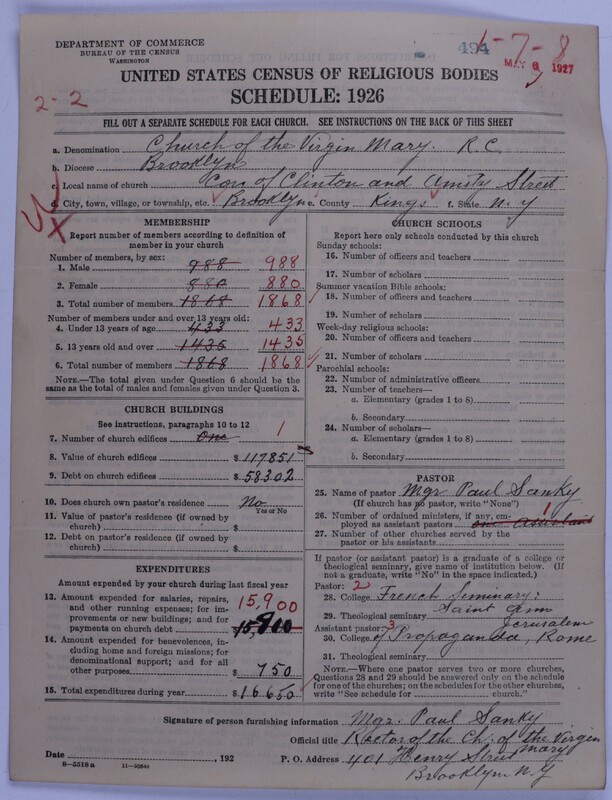 DEPARTMENT OF COMMERCE
BUREAU OF THE CENSUS
WASHINGTON
494
1-7-8
MAY 6 1927
2-2
UNITED STATES CENSUS OF RELIGIOUS BODIES
SCHEDULE: 1926
FILL OUT A SEPARATE SCHEDULE FOR EACH CHURCH. SEE INSTRUCTIONS ON THE BACK OF THIS SHEET
a. Denomination Church of the Virgin Mary. R.C.
b. Diocese Brooklyn
c. Local name of church Cor. of Clinton and Amity Street
d. City, town, village, or township, etc. Brooklyn e. County Kings f. State N.Y
MEMBERSHIP
Report number of members according to definition of member in your church
Number of members, by sex:
1. Male 988 988
2. Female 880 880
3. Total number of members 1868 1868
Number of members under and over 13 years old:
4. Under 13 years of age 433 433
5. 13 years old and over 1435 1435
6. Total number of members 1868 1868
NOTE.—The total given under Question 6 should be the same as the total of males and females given under Question 3.
CHURCH BUILDINGS
See instructions, paragraphs 10 to 12
7. Number of church edifices One 1
8. Value of church edifices $ 117851
9. Debt on church edifices $ 58302
10. Does church own pastor's residence No
Yes or No
11. Value of pastor's residence (if owned by church) $
12. Debt on pastor's residence (if owned by church) $
EXPENDITURES
Amount expended by your church during last fiscal year
13. Amount expended for salaries, repairs, and other running expenses; for improvements or new buildings; and for payments on church debt 15,900
14. Amount expended for benevolences, including home and foreign missions; for denominational support; and for all other purposes $ 750
15. Total expenditures during year $ 16650
CHURCH SCHOOLS
Report here only schools conducted by this church
Sunday schools:
16. Number of officers and teachers
17. Number of scholars
Summer vacation Bible schools:
18. Number of officers and teachers
19. Number of scholars
Week-day religious schools:
20. Number of officers and teachers
21. Number of scholars
Parochial schools:
22. Number of administrative officers
23. Number of teachers—
a. Elementary (grades 1 to 8)
b. Secondary
24. Number of scholars—
a. Elementary (grades 1 to 8)
b. Secondary
PASTOR
25. Name of pastor Mgr Paul Sanky
(If church has no pastor, write "None")
26. Number of ordained ministers, if any, employed as assistant pastors one assistant 1
27. Number of other churches served by the pastor or his assistants
If pastor (or assistant pastor) is a graduate of a college or theological seminary, give name of institution below. (If not a graduate, write "No" in the space indicated.)
Pastor: 2
28. College French Seminary:
29. Theological seminary Saint Ann Jerusalem
Assistant pastor: 3
30. College of Propaganda, Rome
31. Theological seminary
NOTE.—Where one pastor serves two or more churches, Questions 28 and 29 should be answered only on the schedule for one of the churches; on the schedules for the other churches, write "See schedule for church."
Signature of person furnishing information Mgr. Paul Sanky
Official title Rector of the Ch. of the Virgin Mary
Date , 192 P. O. Address 401 Henry Street
Brooklyn N.Y
8-5518 a